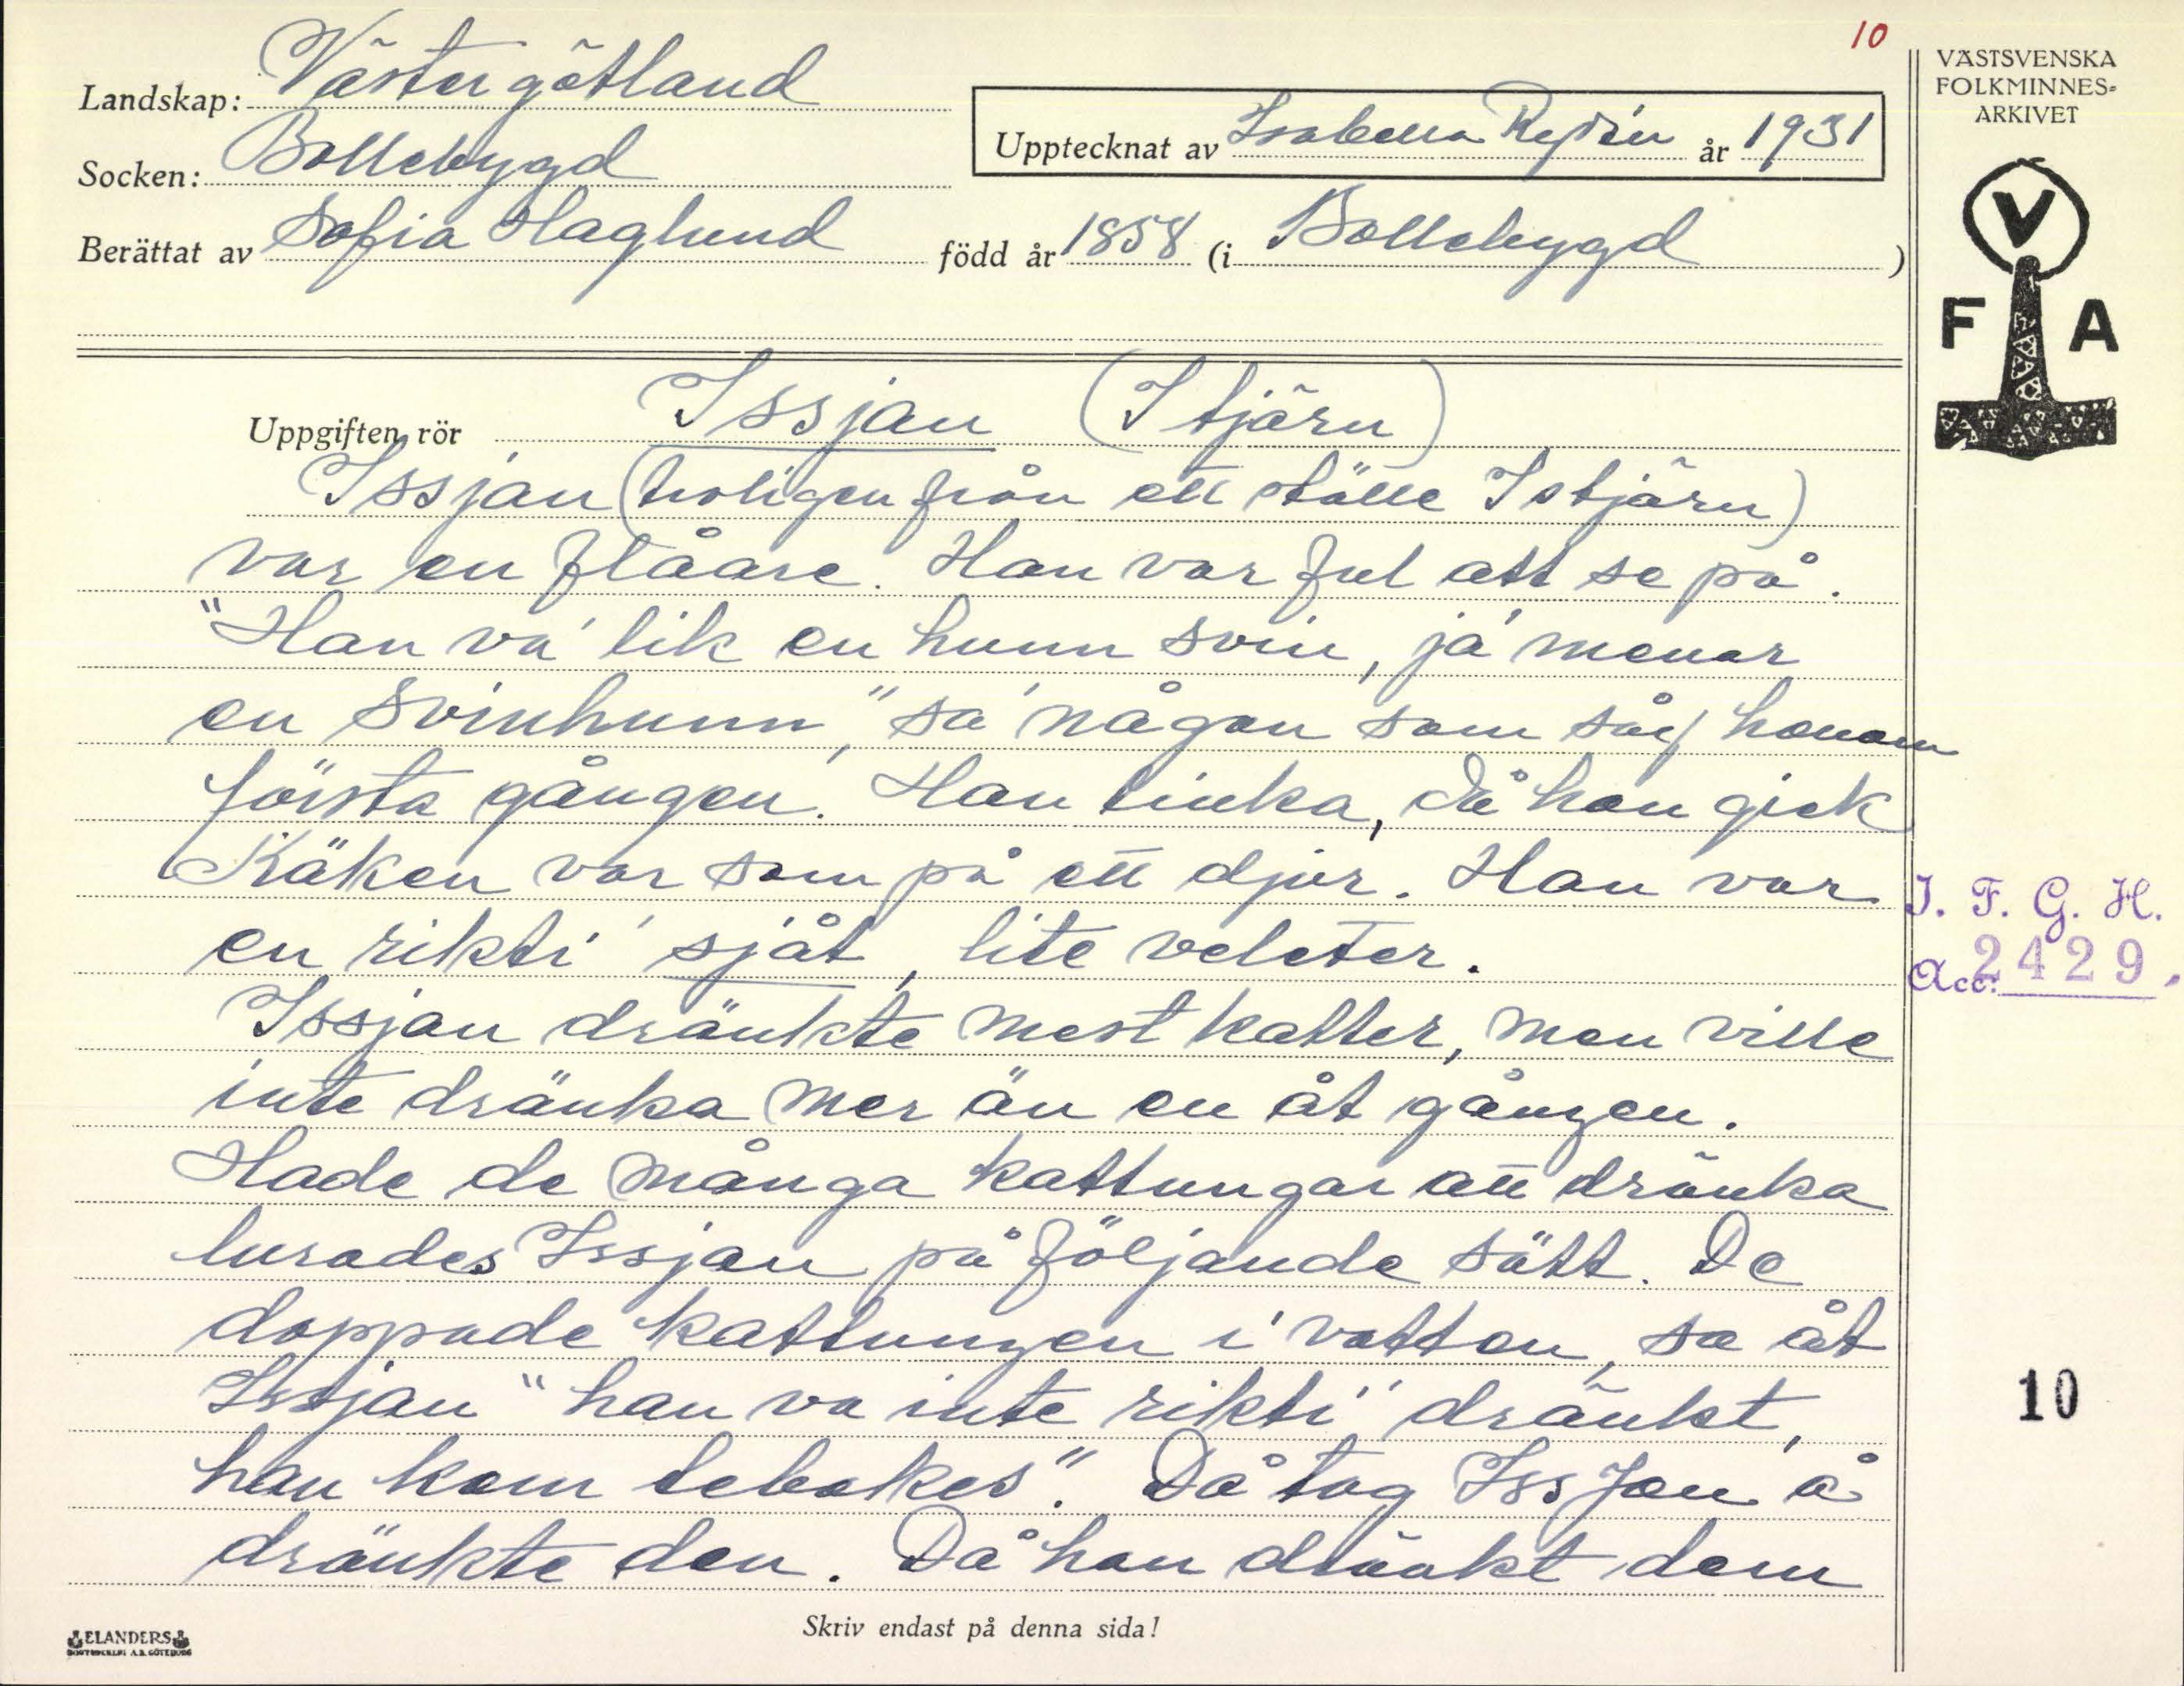 10
Landskap: Västergötland
Socken: Bollebygd
Upptecknat av Isabella år 1931
Berättat av Sofia Haglund född år 1858 (i Bollebygd)
VÄSTSVENSKA
FOLKMINNES-
ARKIVET
V
F A
Uppgiften rör Issjan (Itjärn)
Issjan (troligen från ett ställe Istjärn)
var en flåare. Han var ful att se på.
"Han va' lik en hunn svin, ja' menar
en svinhunn," sa' någon som såg honom
första gången. Han linka, då han gick
Käken var som på ett djur. Han var
en rikti' sjåt, lite veleter.
Issjan dränkte mest katter, men ville
inte dränka mer än en åt gången.
Hade de många kattungar att dränka
lurades Issjan på följande sätt. De
doppade kattungen i vatten, sa åt
Issjan "han va inte rikti' dränkt,
han kom tebakes". Då tog Iss Jan å
dränkte den. Då han dränkt dem
I. F. G. H.
Acc: 2429.
10
Skriv endast på denna sida!
ELANDERS
BOKTRYCKERI A.B. GÖTEBORG